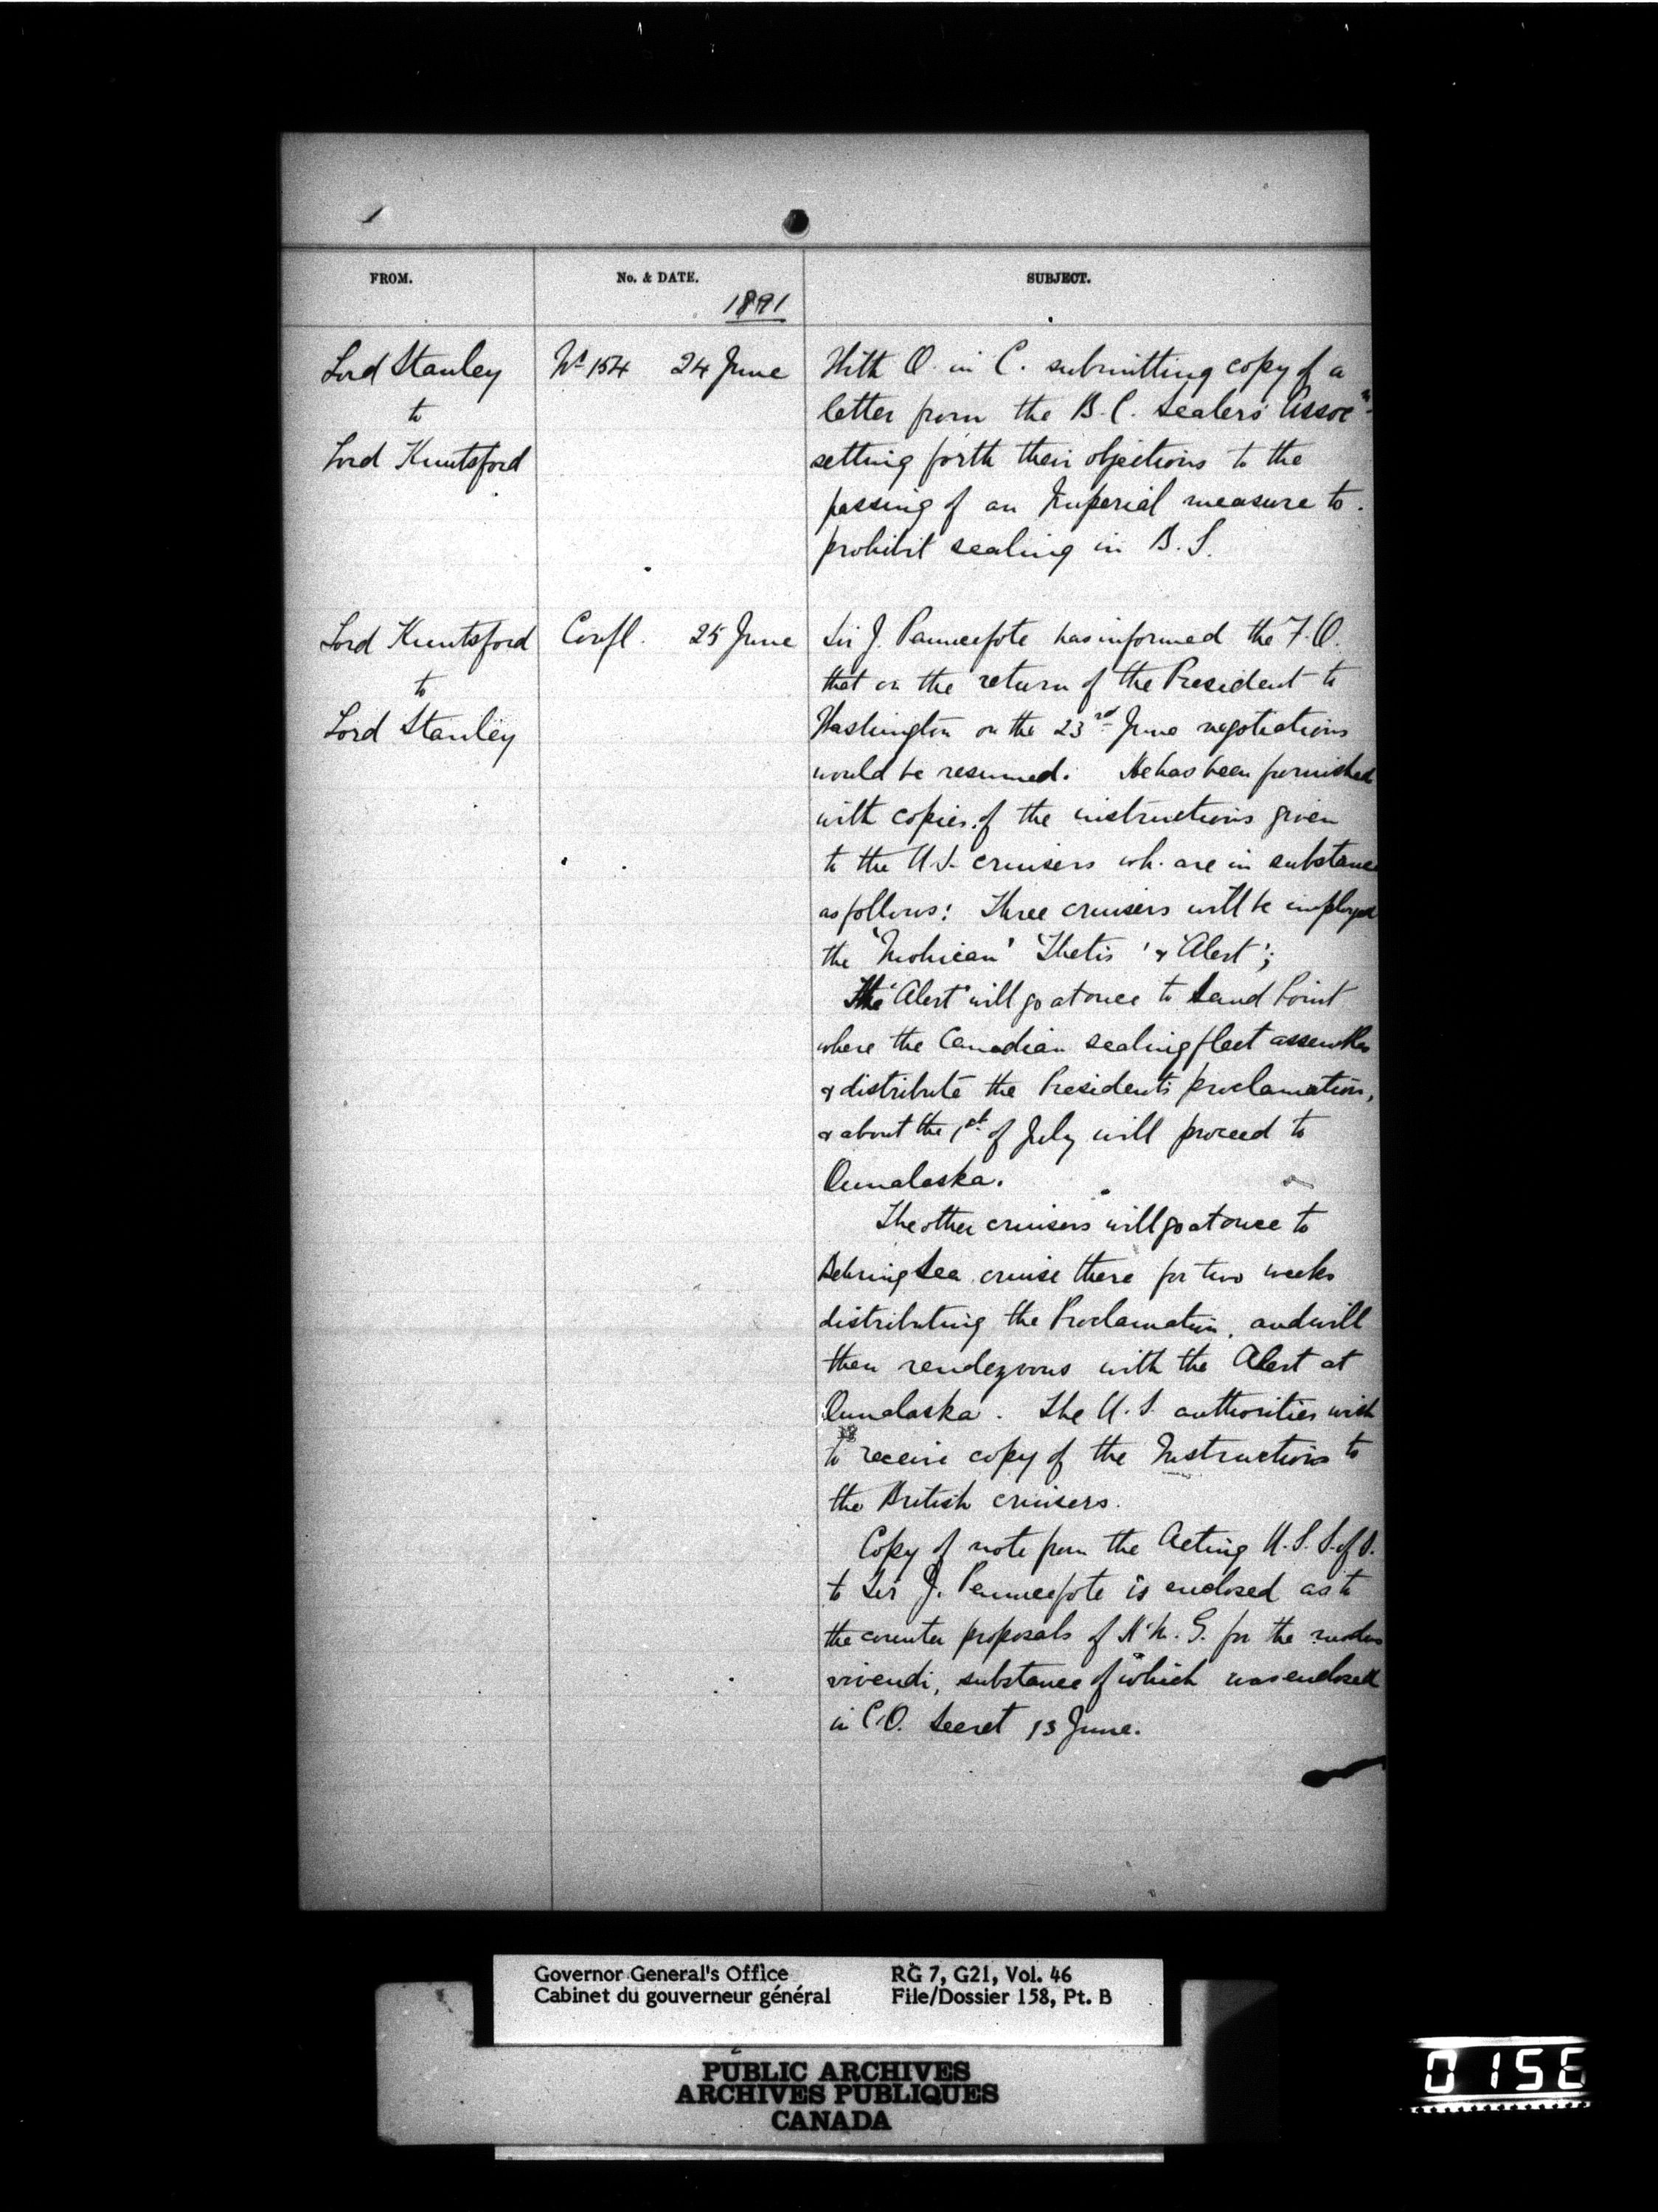 FROM.
No. & DATE.
SUBJECT.
1891
Lord Stanley
to
Lord Knutsford
No 154 24 June
With O. in C. submitting copy of a
letter from the B.C. Sealers' Assocn.
setting forth their objections to the
passing of an Imperial measure to
prohibit sealing in B.S.
Lord Knutsford
to
Lord Stanley
Confl. 25 June
Sir J. Pauncefote has informed the F.O.
that on the return of the President to
Washington on the 23rd June negotiations
would be resumed. He has been furnished
with copies of the instructions given
to the U.S. cruisers wh. are in substance
as follows: Three cruisers will be employed
the 'Mohican' 'Thetis' & 'Alert';
The 'Alert' will go at once to Sand Point
where the Canadian sealing fleet assembles
& distribute the Presidents proclamation,
& about the 1st of July will proceed to
Ounalaska.
The other cruisers will go at once to
Behring Sea cruise there for two weeks
distributing the Proclamation, and will
then rendezvous with the Alert at
Ounalaska. The U.S. authorities wish
to receive copy of the Instructions to
the British cruisers.
Copy of note from the Acting U.S. S. of S.
to Sir J. Pauncefote is enclosed as to
the counter proposals of H.M.G. for the modus
vivendi, substance of which was enclosed
in C.O. Secret 13 June.
Governor General's Office
Cabinet du gouverneur général
RG 7, G21, Vol. 46
File/Dossier 158, Pt. B
PUBLIC ARCHIVES
ARCHIVES PUBLIQUES
CANADA